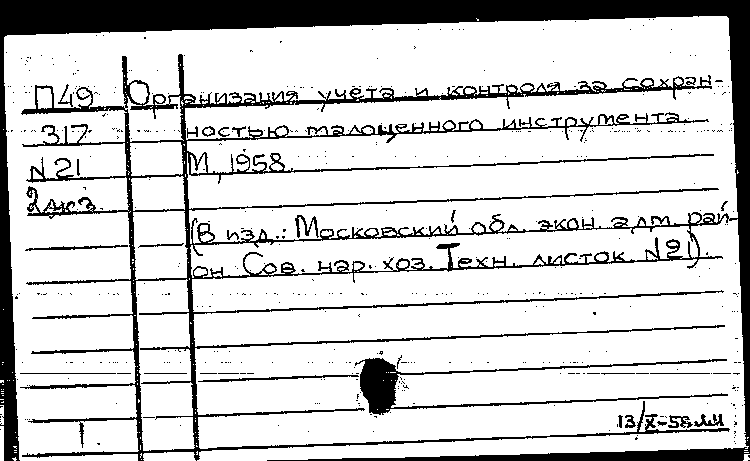 П49 Организация учёта и контроля за сохран-
317 ностью малоценного инструмента.
N21 М., 1958.
2 экз.
(В изд.: Московский обл. экон. адм. рай-
он. Сов. нар. хоз. Техн. листок. №21).
1.
13/X-58